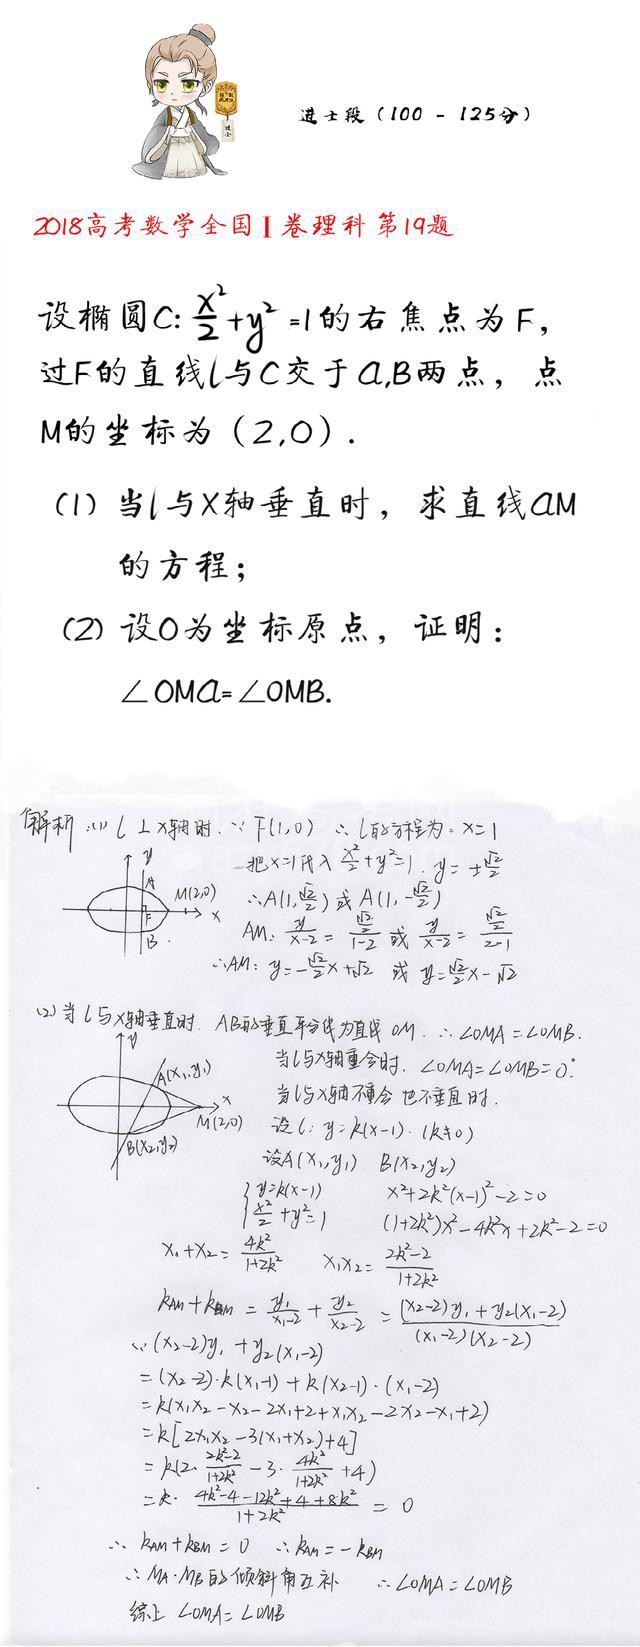 进士段（100 - 125分）
2018高考数学全国I卷理科 第19题
设椭圆C: x²/2+y²=1的右焦点为F，
过F的直线l与C交于A,B两点，点
M的坐标为（2,0）.
(1) 当l与X轴垂直时，求直线AM
的方程；
(2) 设O为坐标原点，证明：
∠OMA=∠OMB.
解析 (1) l⊥x轴时. ∵ F(1,0) ∴ l的方程为: x=1
把x=1代入 x²/2+y²=1. y=±√2/2
∴A(1,√2/2) 或 A(1,-√2/2)
AM: y/(x-2) = (√2/2)/(1-2) 或 y/(x-2) = (√2/2)/(2-1)
∴AM: y=-√2/2x+√2 或 y=√2/2x-√2
y
A
M(2,0)
F
x
B
(2) 当l与x轴垂直时. AB的垂直平分线为直线OM. ∴∠OMA=∠OMB.
当l与x轴重合时. ∠OMA=∠OMB=0°.
当l与x轴不重合也不垂直时.
设l: y=k(x-1). (k≠0)
设A(x₁,y₁) B(x₂,y₂)
y
A(x₁,y₁)
x
M(2,0)
B(x₂,y₂)
{ y=k(x-1) x²+2k²(x-1)²-2=0
x²/2+y²=1 (1+2k²)x²-4k²x+2k²-2=0
x₁+x₂= 4k²/(1+2k²) x₁x₂= (2k²-2)/(1+2k²)
kAM+kBM = y₁/(x₁-2) + y₂/(x₂-2) = ((x₂-2)y₁+y₂(x₁-2))/((x₁-2)(x₂-2))
∵ (x₂-2)y₁+y₂(x₁-2)
=(x₂-2)·k(x₁-1)+k(x₂-1)·(x₁-2)
=k(x₁x₂-x₂-2x₁+2+x₁x₂-2x₂-x₁+2)
=k[2x₁x₂-3(x₁+x₂)+4]
=k(2·(2k²-2)/(1+2k²)-3·4k²/(1+2k²)+4)
=k·(4k²-4-12k²+4+8k²)/(1+2k²) = 0
∴ kAM+kBM=0 ∴kAM=-kBM
∴MA·MB的倾斜角互补 ∴∠OMA=∠OMB
综上 ∠OMA=∠OMB